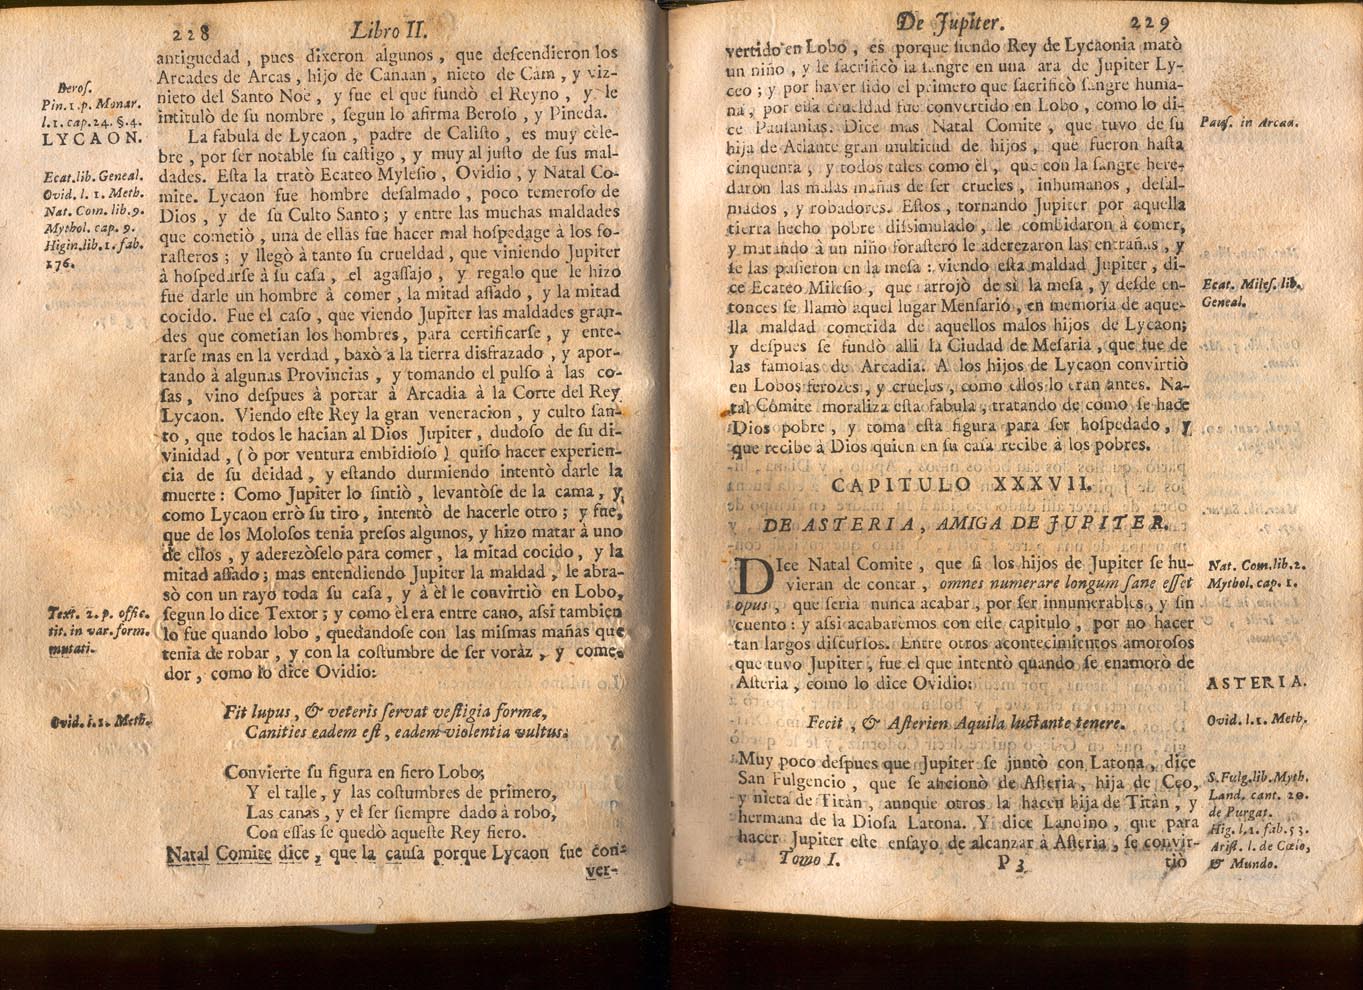 228 Libro II.
antiguedad, pues dixeron algunos, que deſcendieron los
Arcades de Arcas, hijo de Canaan, nieto de Cam, y viz-
nieto del Santo Noe, y fue el que fundò el Reyno, y le
intitulò de ſu nombre, ſegun lo afirma Beroſo, y Pineda.
La fabula de Lycaon, padre de Caliſto, es muy cele-
bre, por ſer notable ſu caſtigo, y muy al juſto de ſus mal-
dades. Eſta la tratò Ecateo Myleſio, Ovidio, y Natal Co-
mite. Lycaon fue hombre deſalmado, poco temeroſo de
Dios, y de ſu Culto Santo; y entre las muchas maldades
que cometiò, una de ellas fue hacer mal hoſpedage à los fo-
raſteros; y llegò à tanto ſu crueldad, que viniendo Jupiter
à hoſpedarſe à ſu caſa, el agaſſajo, y regalo que le hizo
fue darle un hombre à comer, la mitad aſſado, y la mitad
cocido. Fue el caſo, que viendo Jupiter las maldades gran-
des que cometian los hombres, para certificarſe, y ente-
rarſe mas en la verdad, baxò a la tierra disfrazado, y apor-
tando à algunas Provincias, y tomando el pulſo à las co-
ſas, vino deſpues à portar à Arcadia à la Corte del Rey
Lycaon. Viendo eſte Rey la gran veneracion, y culto ſan-
to, que todos le hacian al Dios Jupiter, dudoſo de ſu di-
vinidad, (ò por ventura embidioſo) quiſo hacer experien-
cia de ſu deidad, y eſtando durmiendo intentò darle la
muerte: Como Jupiter lo ſintiò, levantòſe de la cama, y
como Lycaon errò ſu tiro, intentò de hacerle otro; y fue,
que de los Moloſos tenia preſos algunos, y hizo matar à uno
de ellos, y aderezòſelo para comer, la mitad cocido, y la
mitad aſſado; mas entendiendo Jupiter la maldad, le abra-
sò con un rayo toda ſu caſa, y à èl le convirtiò en Lobo,
ſegun lo dice Textor; y como èl era entre cano, aſsi tambien
lo fue quando lobo, quedandoſe con las miſmas mañas que
tenia de robar, y con la coſtumbre de ſer voràz, y come-
dor, como lo dice Ovidio:
Fit lupus, & veteris ſervat veſtigia formæ,
Canities eadem eſt, eadem violentia vultus.
Convierte ſu figura en fiero Lobo;
Y el talle, y las coſtumbres de primero,
Las canas, y el ſer ſiempre dado à robo,
Con eſſas ſe quedò aqueſte Rey fiero.
Natal Comite dice, que la cauſa porque Lycaon fue con-
ver-
Beroſ.
Pin. 1. p. Monar.
l. 1. cap. 24. §. 4.
LYCAON.
Ecat. lib. Geneal.
Ovid. l. 1. Meth.
Nat. Com. lib. 9.
Mythol. cap. 9.
Higin. lib. 1. fab.
176.
Text. 2. p. offic.
tit. in var. form.
mutati.
Ovid. l. 1. Meth.
De Jupiter. 229
vertido en Lobo, es porque ſiendo Rey de Lycaonia matò
un niño, y le ſacrificò la ſangre en una ara de Jupiter Ly-
ceo; y por haver ſido el primero que ſacrificò ſangre huma-
na, por eſta crueldad fue convertido en Lobo, como lo di-
ce Pauſanias. Dice mas Natal Comite, que tuvo de ſu
hija de Atlante gran multitud de hijos, que fueron haſta
cinquenta, y todos tales como èl, que con la ſangre here-
daron las malas mañas de ſer crueles, inhumanos, deſal-
mados, y robadores. Eſtos, tornando Jupiter por aquella
tierra hecho pobre diſsimulado, le combidaron à comer,
y matando à un niño foraſtero le aderezaron las entrañas, y
ſe las puſieron en la meſa: viendo eſta maldad Jupiter, di-
ce Ecateo Mileſio, que arrojò de sì la meſa, y deſde en-
tonces ſe llamò aquel lugar Menſariò, en memoria de aque-
lla maldad cometida de aquellos malos hijos de Lycaon;
y deſpues ſe fundò alli la Ciudad de Meſaria, que fue de
las famoſas de Arcadia. A los hijos de Lycaon convirtiò
en Lobos feroces, y crueles, como ellos lo eran antes. Na-
tal Comite moraliza eſta fabula, tratando de como ſe hace
Dios pobre, y toma eſta figura para ſer hoſpedado, y
que recibe à Dios quien en ſu caſa recibe à los pobres.
CAPITULO XXXVII.
DE ASTERIA, AMIGA DE JUPITER.
DIce Natal Comite, que ſi los hijos de Jupiter ſe hu-
vieran de contar, omnes numerare longum ſane eſſet
opus, que ſeria nunca acabar, por ſer innumerables, y ſin
cuento: y aſsi acabaremos con eſte capitulo, por no hacer
tan largos diſcurſos. Entre otros acontecimientos amoroſos
que tuvo Jupiter, fue el que intentò quando ſe enamorò de
Aſteria, como lo dice Ovidio:
Fecit, & Aſterien Aquila luctante tenere.
Muy poco deſpues que Jupiter ſe juntò con Latona, dice
San Fulgencio, que ſe aficionò de Aſteria, hija de Ceo,
y nieta de Titàn, aunque otros la hacen hija de Titàn, y
hermana de la Dioſa Latona. Y dice Landino, que para
hacer Jupiter eſte enſayo de alcanzar à Aſteria, ſe convir-
Tomo I. P 3 tiò
Pauſ. in Arcan.
Ecat. Mileſ. lib.
Geneal.
Nat. Com. lib. 2.
Mythol. cap. 1.
ASTERIA.
Ovid. l. 1. Meth.
S. Fulg. lib. Myth.
Land. cant. 20.
de Purgat.
Hig. l. 1. fab. 53.
Ariſt. l. de Cœlo,
& Mundo.